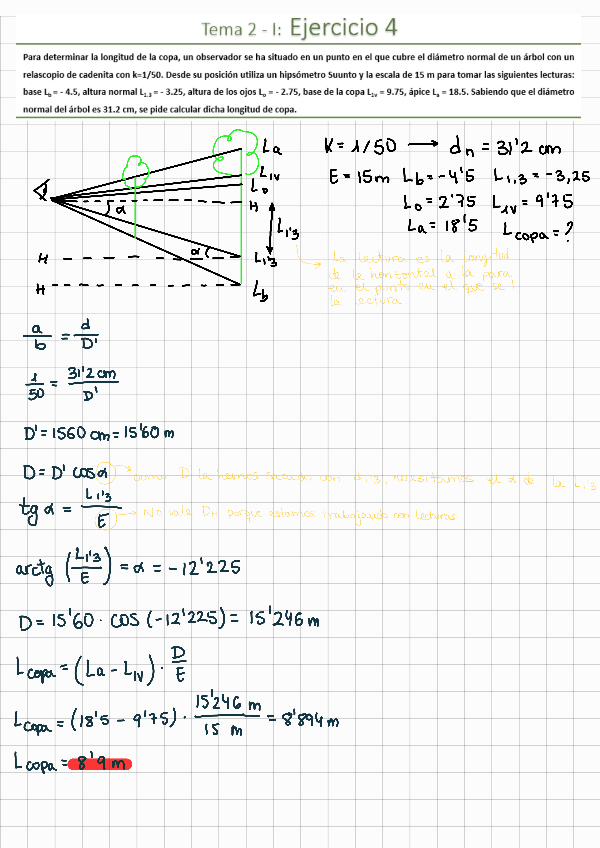 Tema 2 - I: Ejercicio 4
Para determinar la longitud de la copa, un observador se ha situado en un punto en el que cubre el diámetro normal de un árbol con un
relascopio de cadenita con k=1/50. Desde su posición utiliza un hipsómetro Suunto y la escala de 15 m para tomar las siguientes lecturas:
base Lb = - 4.5, altura normal L1.3 = - 3.25, altura de los ojos Lo = - 2.75, base de la copa L1v = 9.75, ápice La = 18.5. Sabiendo que el diámetro
normal del árbol es 31.2 cm, se pide calcular dicha longitud de copa.
K = 1/50 → dn = 31'2 cm
E = 15m Lb = -4'5 L1,3 = -3,25
Lo = 2'75 L1V = 9'75
La = 18'5 Lcopa = ?
La
L1V
Lo
H
α
L1'3
α
H
L1'3
H
Lb
La lectura es la longitud
de la horizontal a la para
en el punto en el que se
la lectura
a/b = d/D'
1/50 = 31'2 cm/D'
D' = 1560 cm = 15'60 m
D = D' cos α
como D la hemos sacado con d1,3, necesitamos el α de la L1,3
tg α = L1'3/E
No vale DH porque estamos trabajando con lecturas
arctg (L1'3/E) = α = -12'225
D = 15'60 · cos (-12'225) = 15'246 m
Lcopa = (La - L1V) · D/E
Lcopa = (18'5 - 9'75) · 15'246 m/15 m = 8'894 m
Lcopa = 8'9 m